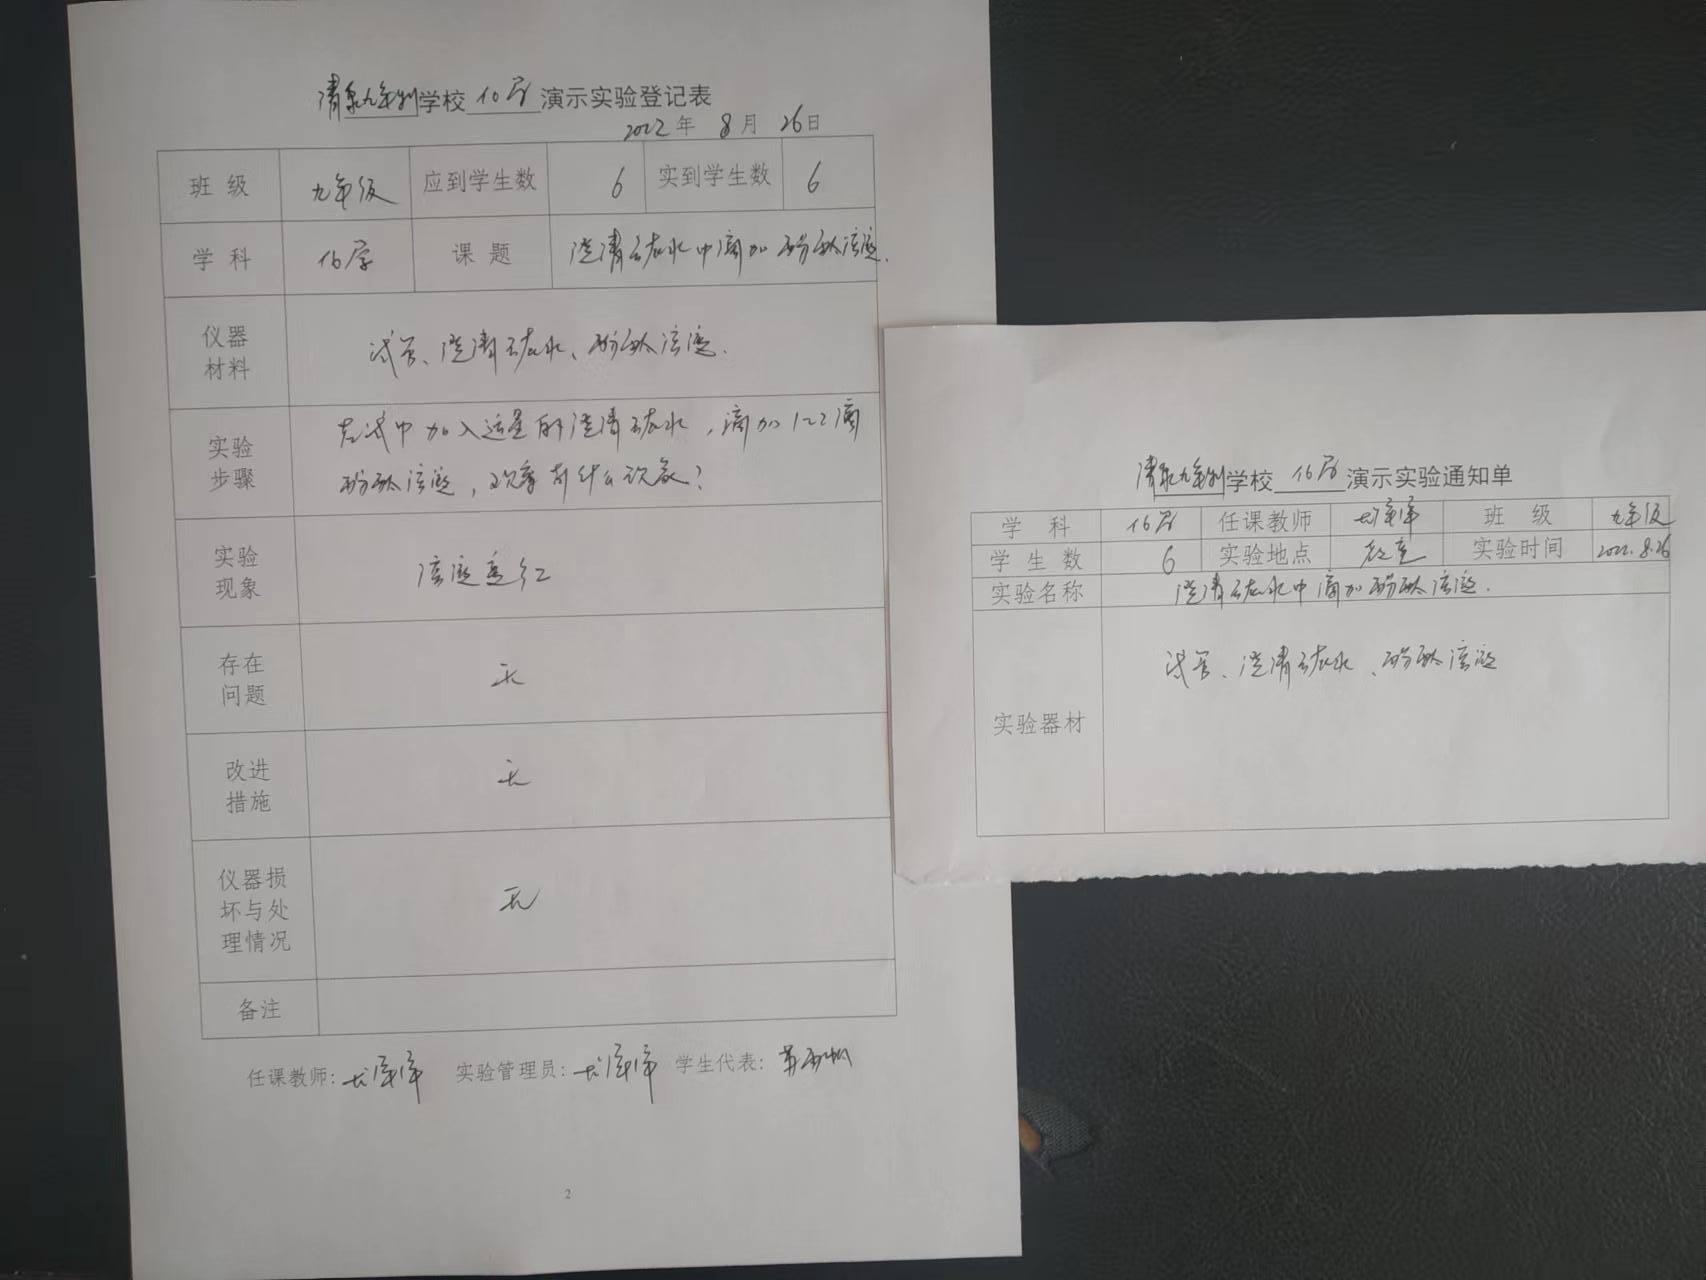 清泉九年制学校 化学 演示实验登记表
2022年 8月 26日
班 级 九年级 应到学生数 6 实到学生数 6
学 科 化学 课 题 澄清石灰水中滴加酚酞溶液.
仪器
材料
试管、澄清石灰水、酚酞溶液.
实验
步骤
在试中加入适量的澄清石灰水，滴加1~2滴
酚酞溶液，观察有什么现象?
实验
现象
溶液变红
存在
问题
无
改进
措施
无
仪器损
坏与处
理情况
无
备注
任课教师： 实验管理员： 学生代表：
2
清泉九年制学校 化学 演示实验通知单
学 科 化学 任课教师 班 级 九年级
学 生 数 6 实验地点 教室 实验时间 2022.8.26
实验名称 澄清石灰水中滴加酚酞溶液.
实验器材
试管、澄清石灰水、酚酞溶液